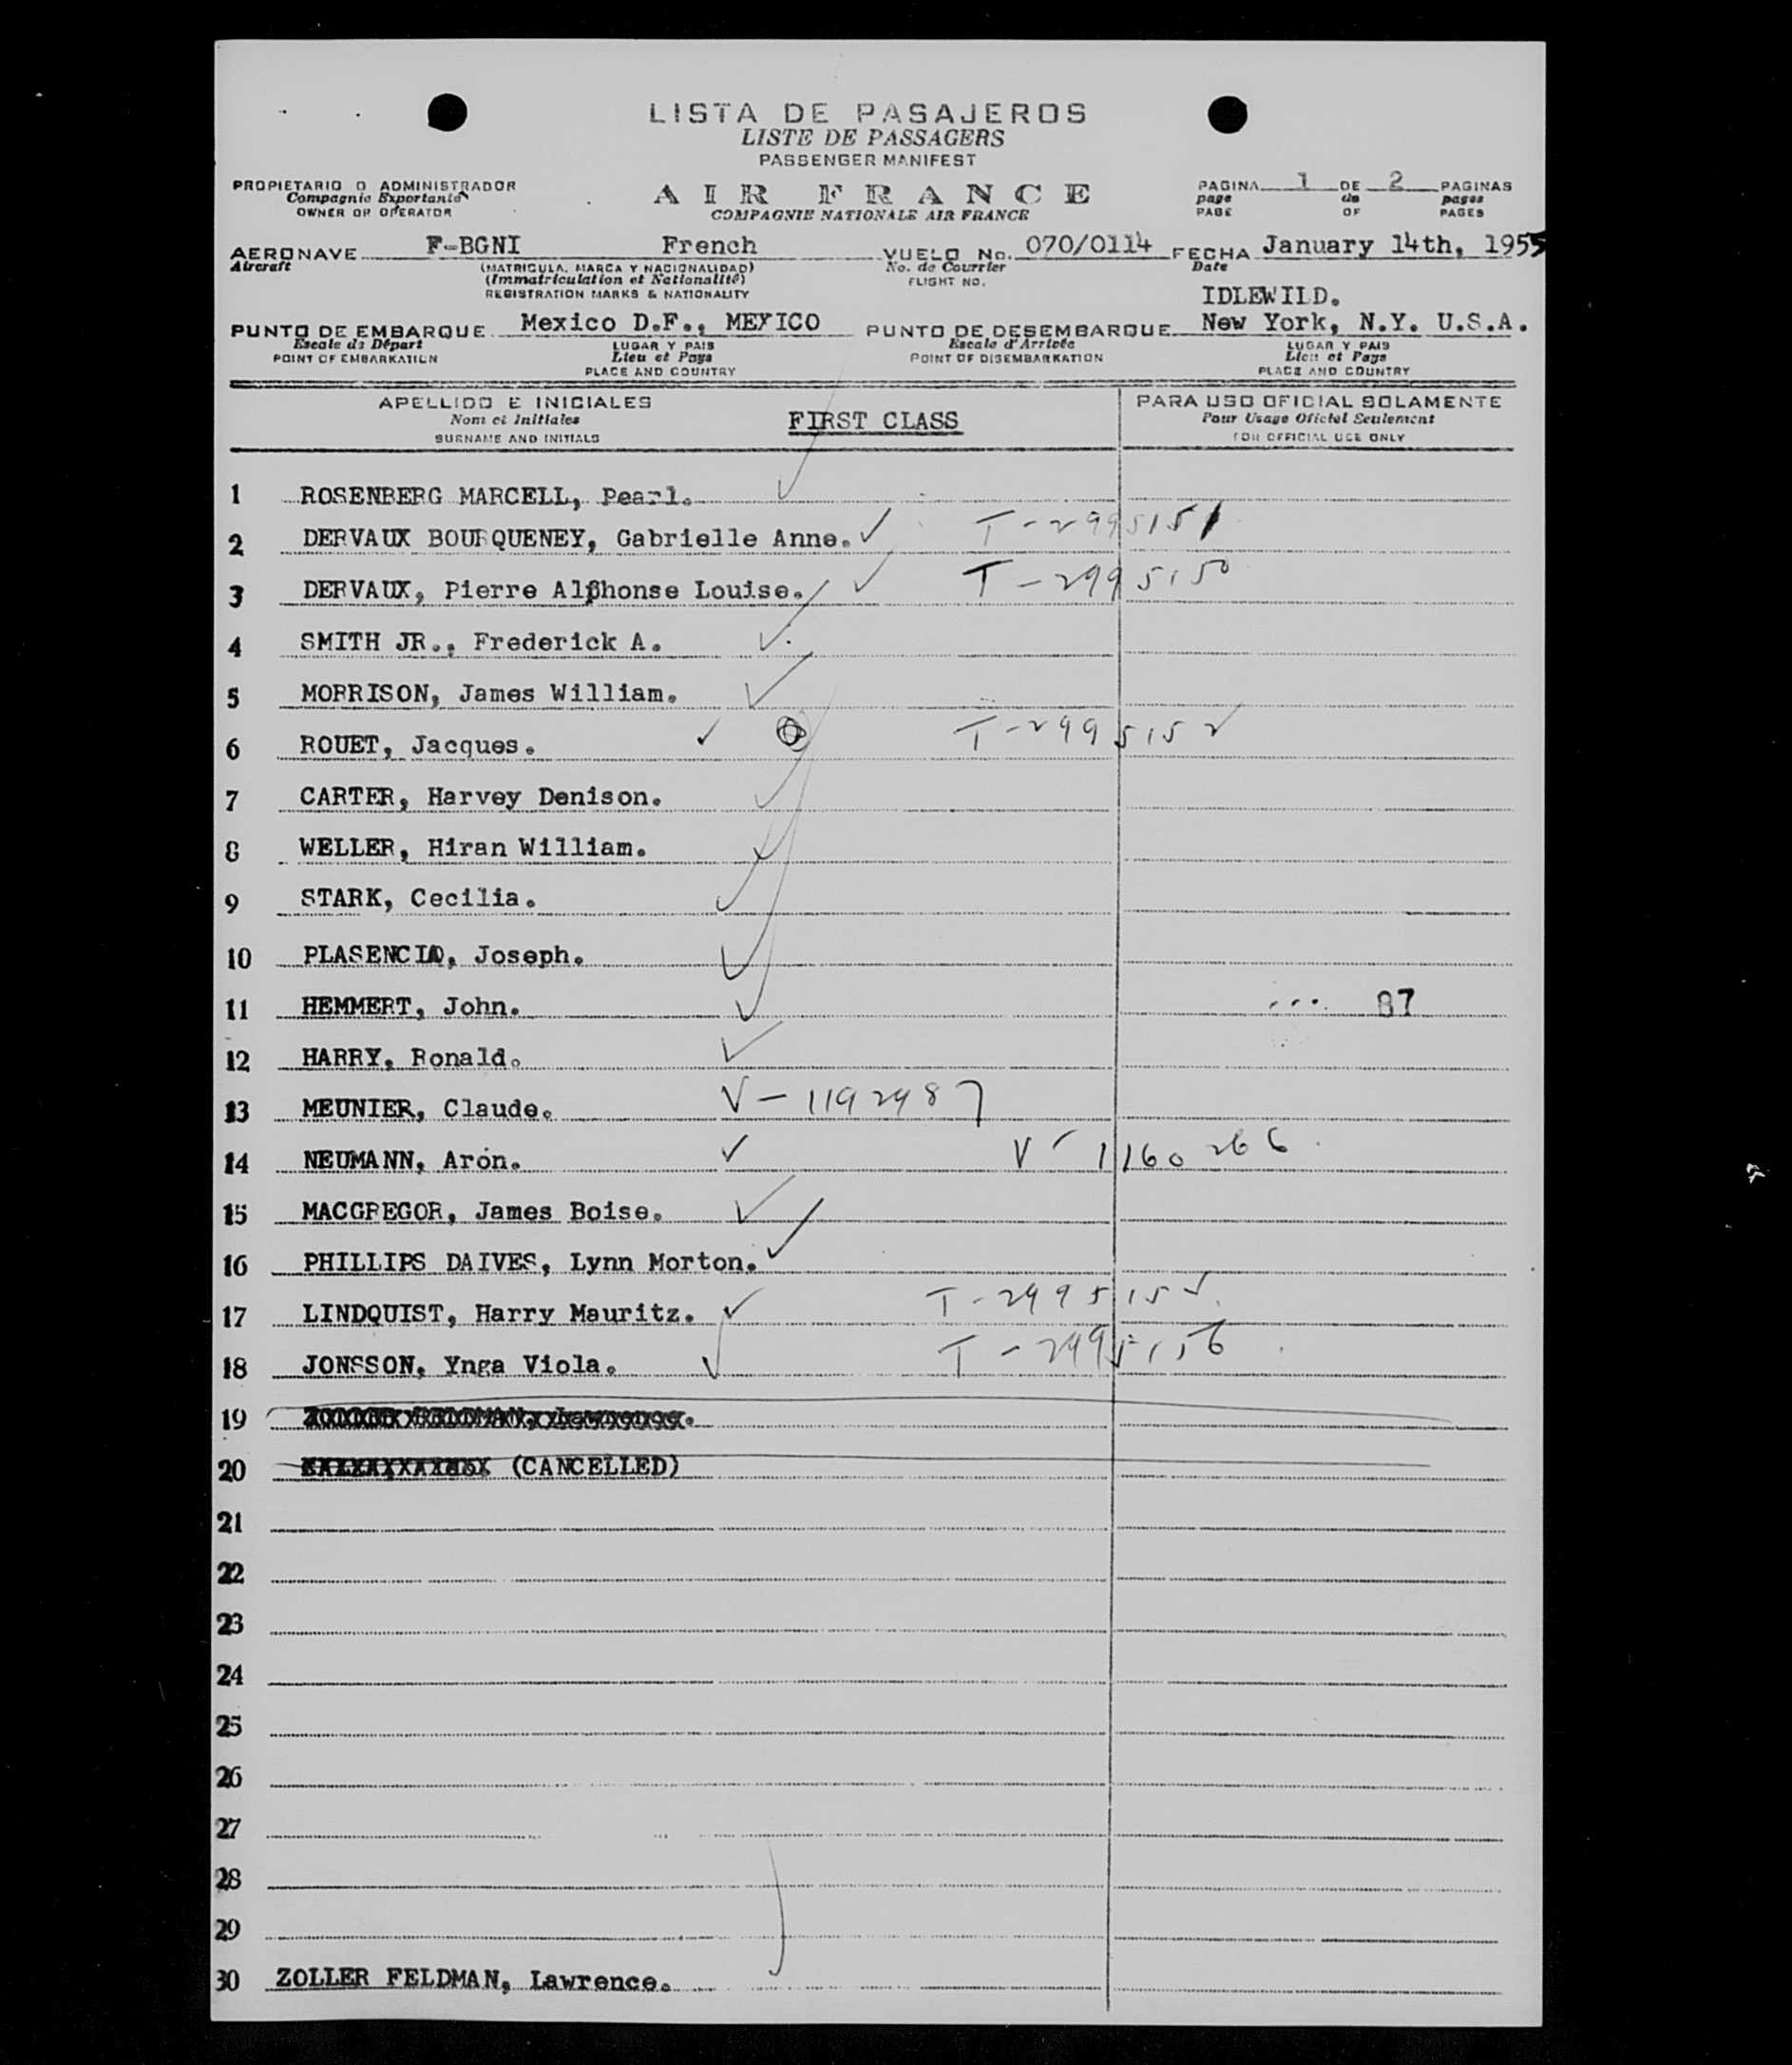 LISTA DE PASAJEROS
LISTE DE PASSAGERS
PASSENGER MANIFEST
PROPIETARIO O ADMINISTRADOR
Compagnie Exportante
OWNER OR OPERATOR
AIR FRANCE
COMPAGNIE NATIONALE AIR FRANCE
PAGINA 1 DE 2 PAGINAS
page de pages
PAGE OF PAGES
AERONAVE F-BGNI French VUELO No. 070/0114 FECHA January 14th, 1955
Aircraft (MATRICULA, MARCA Y NACIONALIDAD) No. de Courrier Date
(Immatriculation et Nationalité) FLIGHT NO.
REGISTRATION MARKS & NATIONALITY
IDLEWILD.
PUNTO DE EMBARQUE Mexico D.F., MEXICO PUNTO DE DESEMBARQUE New York, N.Y. U.S.A.
Escale de Départ LUGAR Y PAIS Escale d'Arrivée LUGAR Y PAIS
POINT OF EMBARKATION Lieu et Pays POINT OF DISEMBARKATION Lieu et Pays
PLACE AND COUNTRY PLACE AND COUNTRY
APELLIDO E INICIALES
Nom et Initiales
SURNAME AND INITIALS
FIRST CLASS
PARA USO OFICIAL SOLAMENTE
Pour Usage Oficiel Seulement
FOR OFFICIAL USE ONLY
1 ROSENBERG MARCELL, Pearl.
2 DERVAUX BOURQUENEY, Gabrielle Anne. T-2995151
3 DERVAUX, Pierre Alphonse Louise. T-2995150
4 SMITH JR., Frederick A.
5 MORRISON, James William.
6 ROUET, Jacques. T-2995152
7 CARTER, Harvey Denison.
8 WELLER, Hiran William.
9 STARK, Cecilia.
10 PLASENCIO, Joseph.
11 HEMMERT, John. 87
12 HARRY, Ronald.
13 MEUNIER, Claude. V-1192487
14 NEUMANN, Arón. V-1160266
15 MACGREGOR, James Boise.
16 PHILLIPS DAIVES, Lynn Morton.
17 LINDQUIST, Harry Mauritz. T-2995155
18 JONSSON, Ynga Viola. T-2995156
19
20 (CANCELLED)
21
22
23
24
25
26
27
28
29
30 ZOLLER FELDMAN, Lawrence.